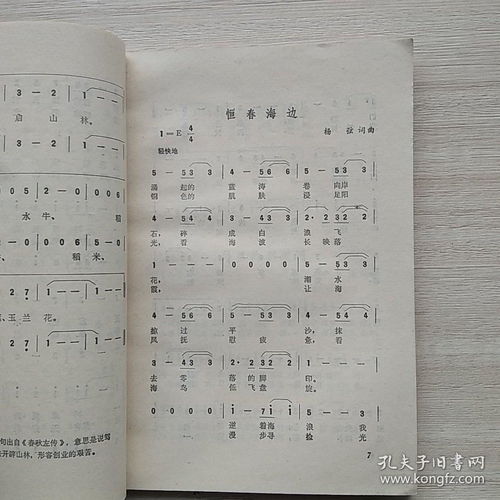 3 - 2 | 1 - - - |
启 山 林。
3 - 2 | 1 - - - |
0 0 5 | 2 - 0 0 | 0 0 6
水 牛、 稻
0 0 6 | 5 - 0
稻 米、
2 7 | 1 - - | 1 - -
玉 兰 花。
2 7 | 1 - - | 1 - -
句出自《春秋左传》，意思是说驾
开辟山林，形容创业的艰苦。
恒春海边
1=E 4/4
杨 弦 词曲
轻快地
涌 起的 蓝 涛 卷 向岸
铜 色的 肌 肤 浸 足阳
4 - 5 6 6 | 5 - 4 3 3 | 2· 2 3 2 2 |
石，碎 成 白 浪 飞
光，看 海 波 长 映 落
1 - - - | 0 0 0 0 | 5 - 5 3 3 |
花， 潮 水
霞， 让 海
4 - 5 6 6 | 5 - 5 3 3 | 4 - 5 6 6 |
掠 过 平 沙，抹
风 抚 慰 疲 惫，看
去 零 落 的 脚 印。
海 鸟 低 飞 盘 旋。
逆 着海 浪 我
漫 步寻 捡 光
7
孔夫子旧书网
www.kongfz.com